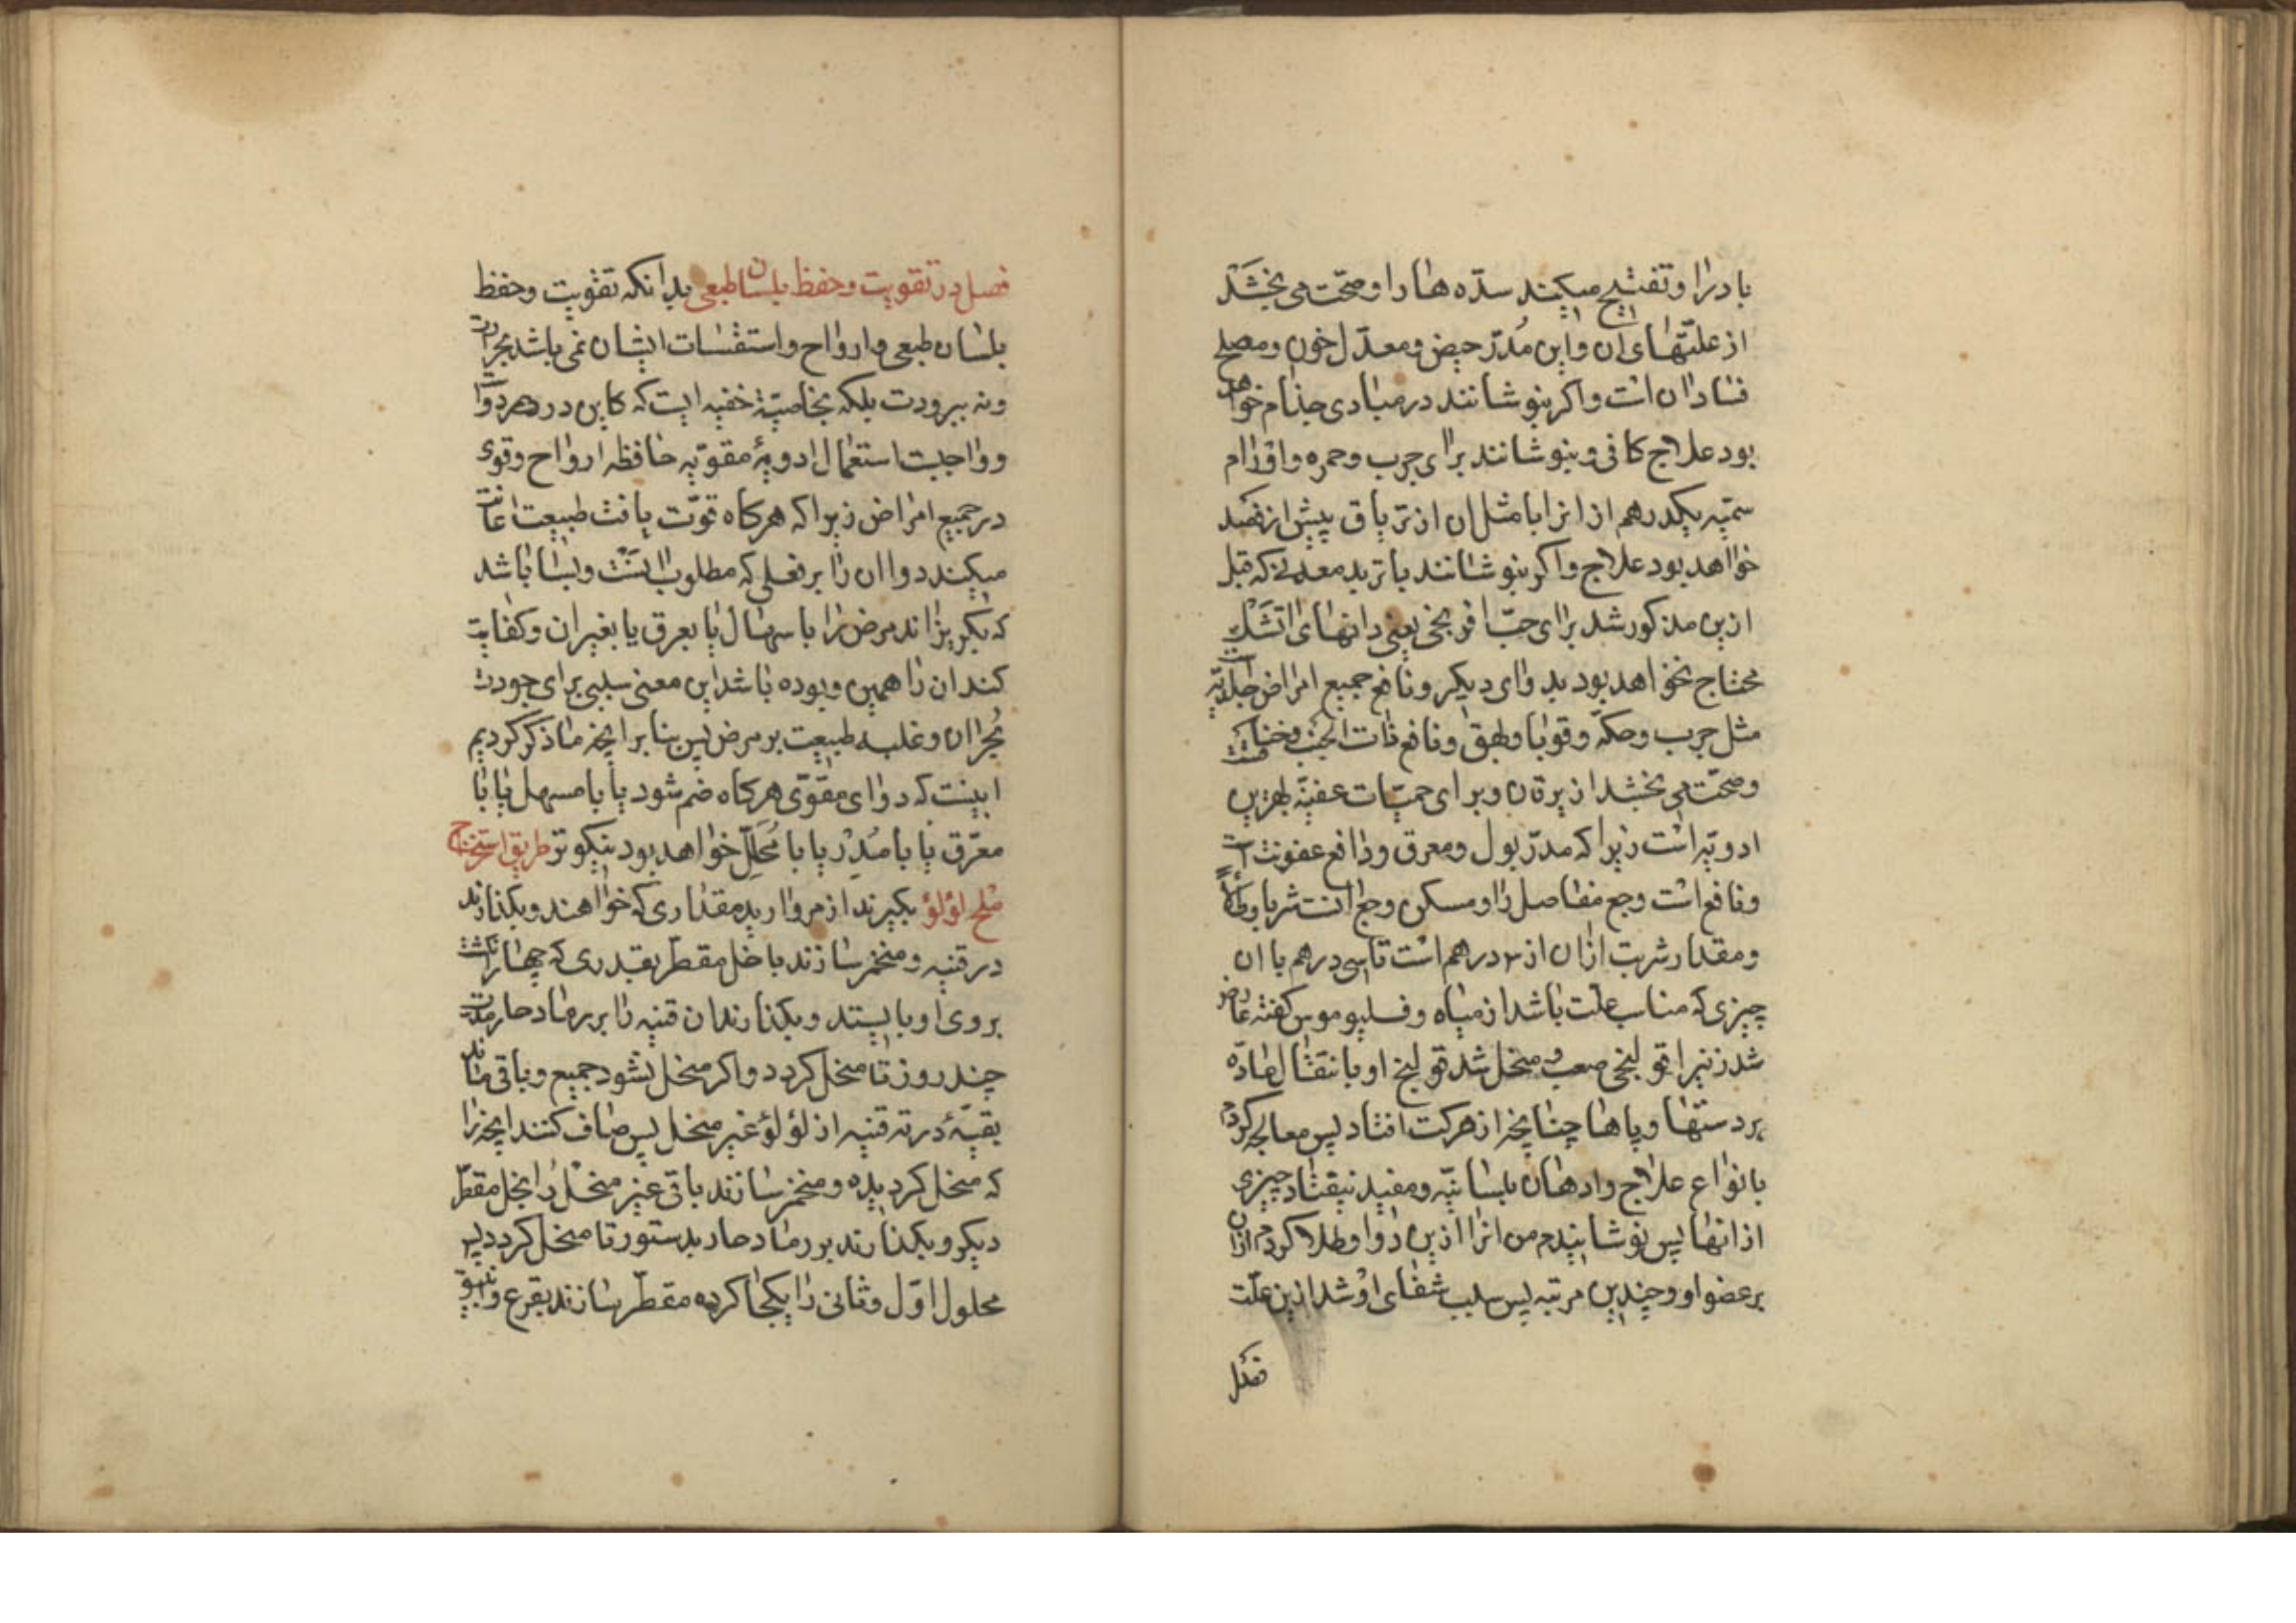 باد را و تفتیح میکند سدّه ها را و صحّت می بخشد
از علّتهای ان و این مُدرّ حیض و معدّل خون و مصلح
فساد ان است و اکر بنوشانند در مبادی جذام خواهد
بود علاج کافی و بنوشانند برای جرب و حمره و اورام
سمّیه یکدرهم از انرا با مثل ان از تریاق پیش از فصد
خواهد بود علاج و اکر بنوشانند با تربد معدنی که قبل
ازین مذکور شد برای حبّ افرنجی یعنی دانهای اتشک
محتاج نخواهد بود بدوای دیکر و نافع جمیع امراض جلدیّه است
مثل جرب و حکّه و قوبا و بهق و نافع ذات الجنب و خناق
و صحّت می بخشد از یرقان و برای حمیّات عفنیّه بهترین
ادویّه است زیرا که مدرّ بول و معرق و دافع عفونت است
و نافع است وجع مفاصل را و مسکن وجع انست شربا و طلاءً
و مقدار شربت ازان از ۲ درهم است تا سی درهم با ان
چیزی که مناسب علّت باشد از میاه و فلیوموس کفته عارض
شد زنیرا قولنجی صعب و منحل شد قولنج او بانتقال مادّه
بر دستها و پاها چنانچه از حرکت افتاد پس معالجه کردم
بانواع علاج و ادهان بلسانیّه و مفید نیفتاد چیزی
از انها پس نوشانیدم من انرا ازین دوا و طلا کردم ازان
بر عضو او و چندین مرتبه پس سبب شفای او شد ازین علّت
فصل
فصل در تقویت و حفظ بلسان طبعی بدانکه تقویت و حفظ
بلسان طبعی و ارواح و استقسات ایشان نمی باشد بحرارت
و نه ببرودت بلکه بخاصیّة خفیه ایست که کاین در هر دوا
و واجبست استعمال ادویهٔ مقوّیه حافظه ارواح و قوی
در جمیع امراض زیرا که هرکاه قوّت یافت طبیعت اعانت
میکند دوا ان را بر فعلی که مطلوب انست و بسا باشد
که بکریزاند مرض را باسهال یا بعرق یا بغیر ان و کفایت
کند ان را همین و بوده باشد این معنی سببی برای جودت
بُحران و غلبه طبیعت بر مرض پس بنابر انچه ما ذکر کردیم
اینست که دوای مقوّی هرکاه ضم شود یا با مسهل یا با
معرّق یا با مُدِرّ یا با مُحَلِّل خواهد بود نیکوتر طریق استخراج
ملح لؤلؤ بکیرند از مروارید مقداری که خواهند و بکذارند
در قنیه و منخمر سازند با خل مقطّر بقدری که چهار انکشت
بروی او بایستد و بکذارند ان قنیه را بر رماد حار مدّت
چند روز تا منحل کردد و اکر منحل نشود جمیع و باقی ماند
بقیّهٔ در ته قنیه از لؤلؤ غیر منحل پس صاف کنند انچه را
که منحل کردیده و منخمر سازند باقی غیر منحل را بخل مقطّر
دیکر و بکذارند بر رماد حار بدستور تا منحل کردد پس
محلول اوّل و ثانی را یکجا کرده مقطّر سازند بقرع و انبیق